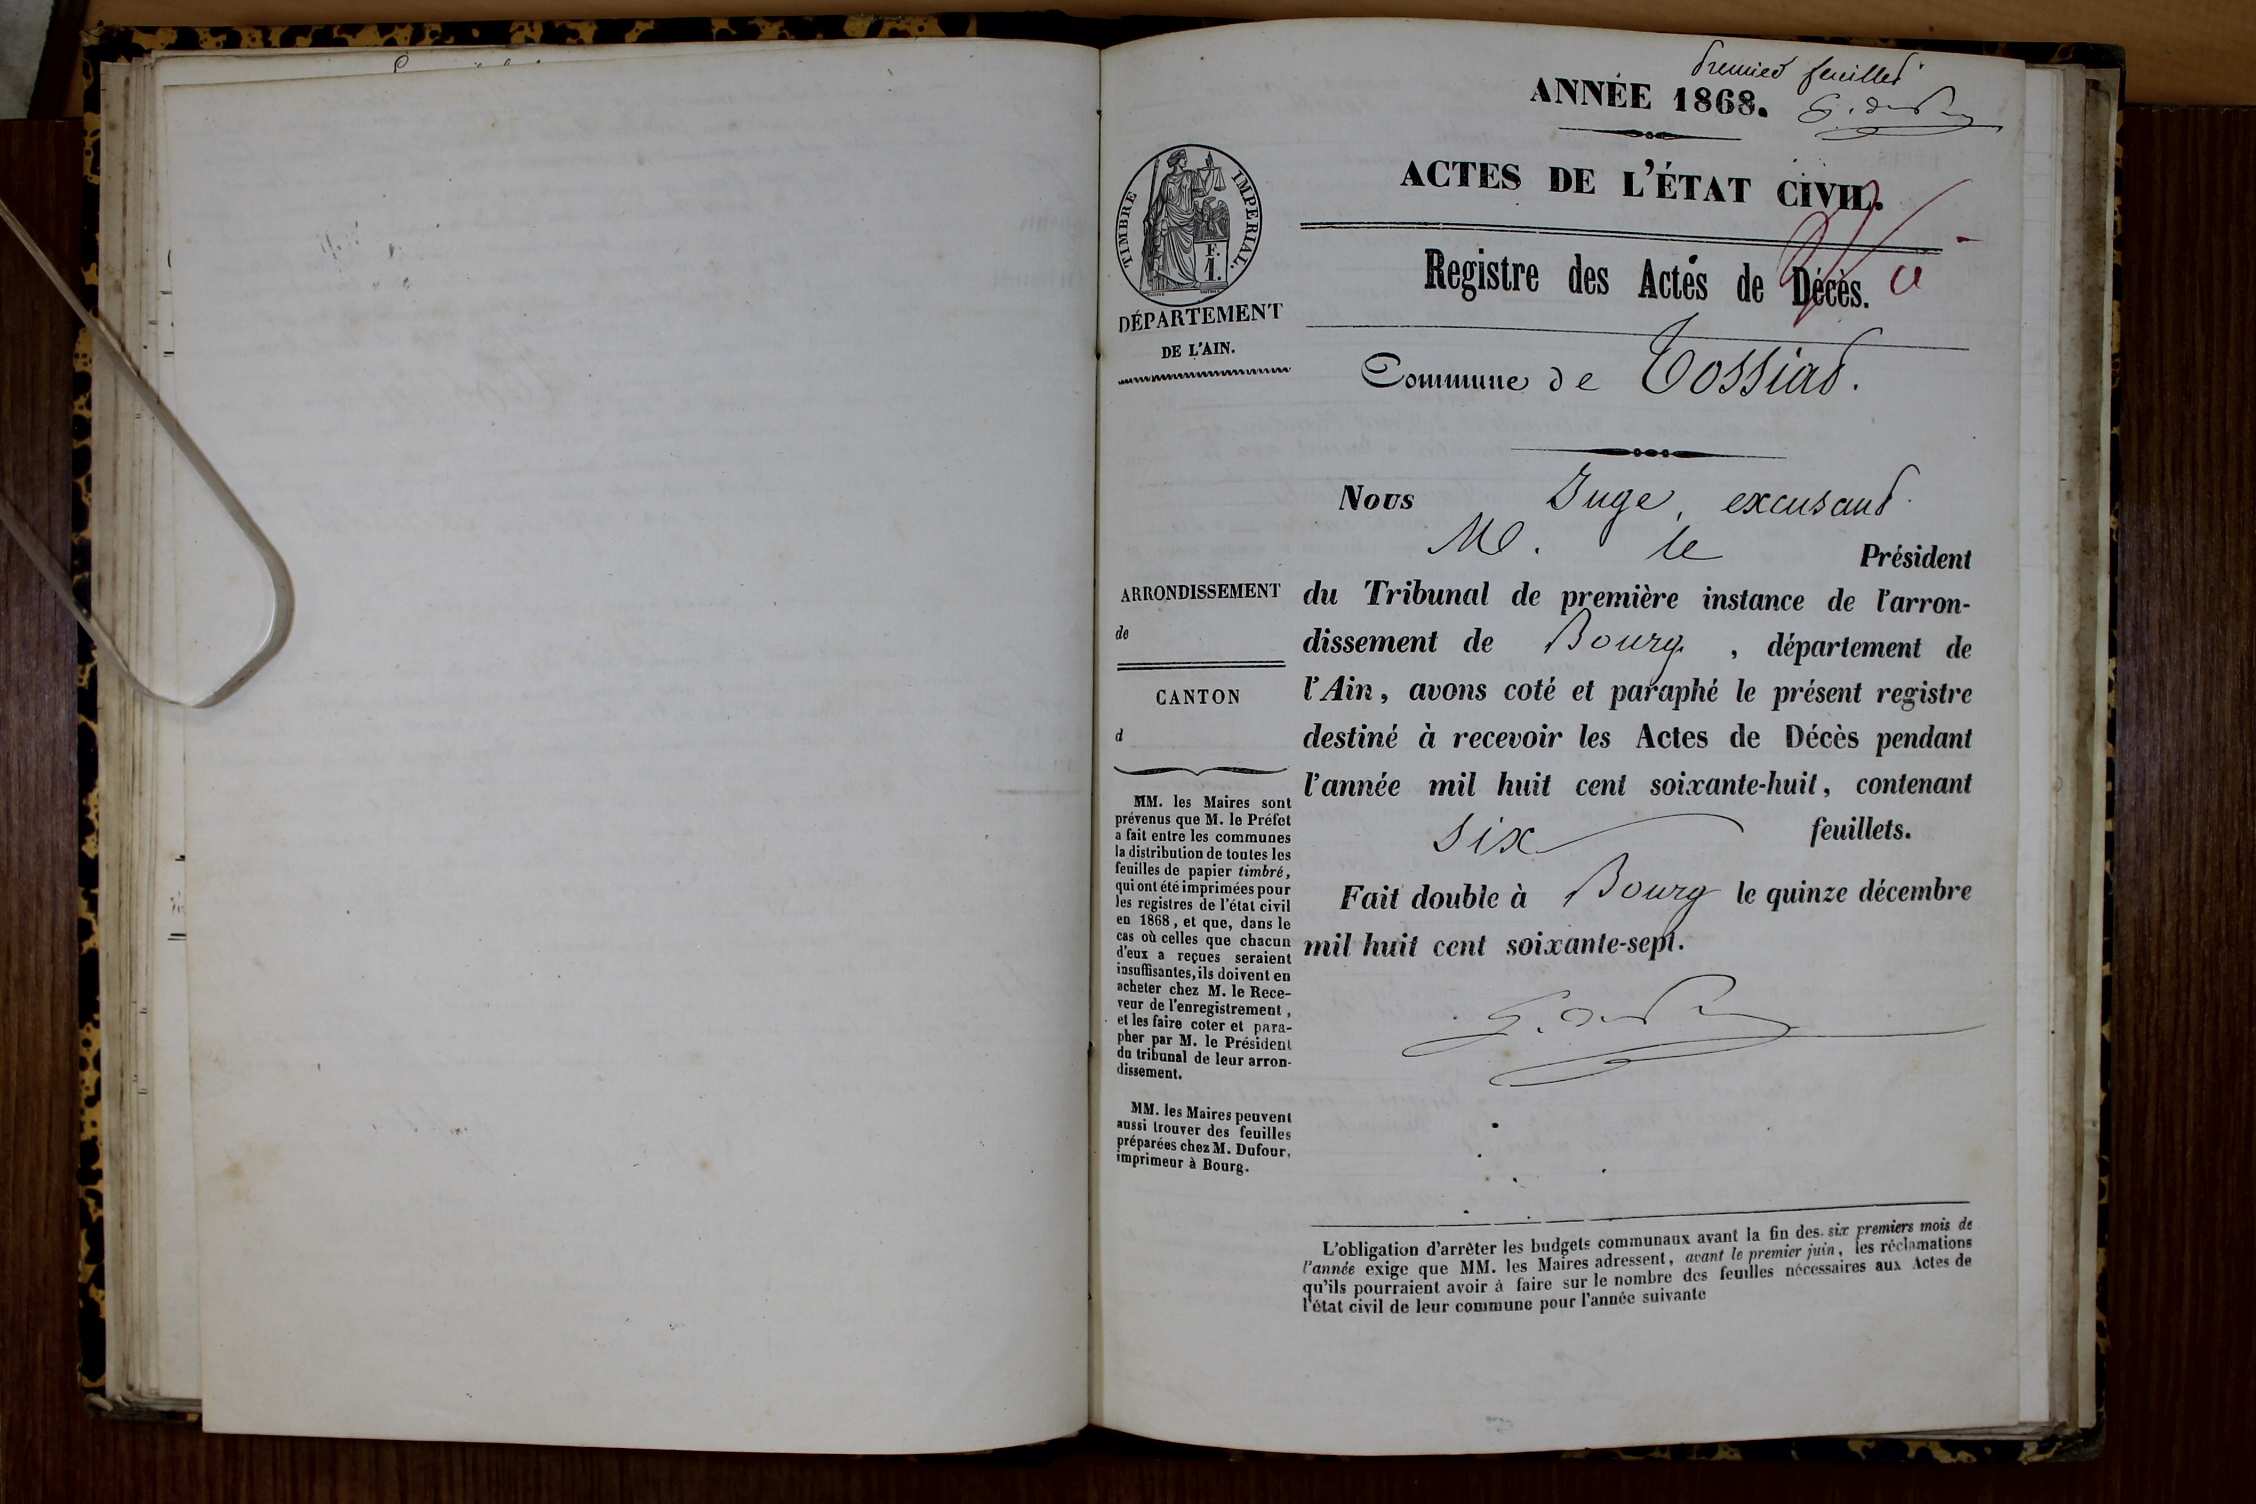 Premier feuillet
ANNÉE 1868.
ACTES DE L'ÉTAT CIVIL.
TIMBRE IMPERIAL.
F.
1.
Registre des Actes de Décès.
DÉPARTEMENT
DE L'AIN.
Commune de Tossiat.
Nous Juge, excusant
M. le Président
du Tribunal de première instance de l'arron-
dissement de Bourg, département de
l'Ain, avons coté et paraphé le présent registre
destiné à recevoir les Actes de Décès pendant
l'année mil huit cent soixante-huit, contenant
six feuillets.
Fait double à Bourg le quinze décembre
mil huit cent soixante-sept.
ARRONDISSEMENT
de
CANTON
d
MM. les Maires sont
prévenus que M. le Préfet
a fait entre les communes
la distribution de toutes les
feuilles de papier timbré,
qui ont été imprimées pour
les registres de l'état civil
en 1868, et que, dans le
cas où celles que chacun
d'eux a reçues seraient
insuffisantes, ils doivent en
acheter chez M. le Rece-
veur de l'enregistrement,
et les faire coter et para-
pher par M. le Président
du tribunal de leur arron-
dissement.
MM. les Maires peuvent
aussi trouver des feuilles
préparées chez M. Dufour,
imprimeur à Bourg.
L'obligation d'arrêter les budgets communaux avant la fin des six premiers mois de
l'année exige que MM. les Maires adressent, avant le premier juin, les réclamations
qu'ils pourraient avoir à faire sur le nombre des feuilles nécessaires aux Actes de
l'état civil de leur commune pour l'année suivante